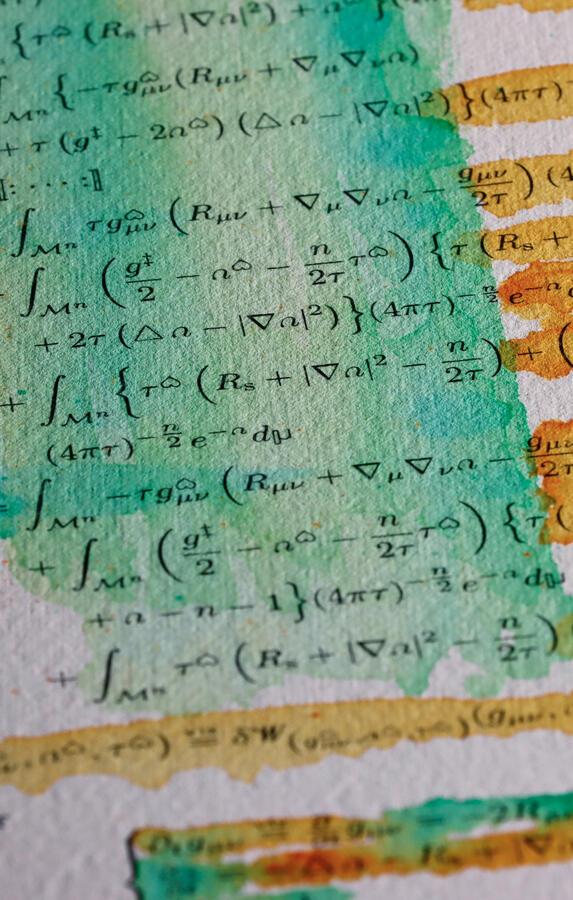 {τ^⌂ (R_s + |∇α|²) + α^⌂ }(
∫_{Mⁿ} {−τg^⌂_{μν}(R_{μν} + ∇_μ∇_να)
+ τ (g^‡ − 2α^⌂) (△α − |∇α|²)}(4πτ)
⟦: · · · :⟧
∫_{Mⁿ} τg^⌂_{μν} (R_{μν} + ∇_μ∇_να − g_{μν}/2τ) (4
∫_{Mⁿ} (g^‡/2 − α^⌂ − n/2τ τ^⌂) {τ (R_s +
+ 2τ (△α − |∇α|²)}(4πτ)^{−n/2} e^{−α}
+ ∫_{Mⁿ} {τ^⌂ (R_s + |∇α|² − n/2τ) + (
(4πτ)^{−n/2} e^{−α} dμ
= ∫_{Mⁿ} −τg^⌂_{μν} (R_{μν} + ∇_μ∇_να − g_{μν}/2τ
+ ∫_{Mⁿ} (g^‡/2 − α^⌂ − n/2τ τ^⌂) {τ (
+ α − n − 1}(4πτ)^{−n/2} e^{−α} dμ
+ ∫_{Mⁿ} τ^⌂ (R_s + |∇α|² − n/2τ)
, α^⌂, τ^⌂) = δW(g^⌂_{μν}, α^⌂, τ^⌂)(g_{μν},
∂_t g_{μν} = = −2R_{μν}
= −△α − R_s + |∇α